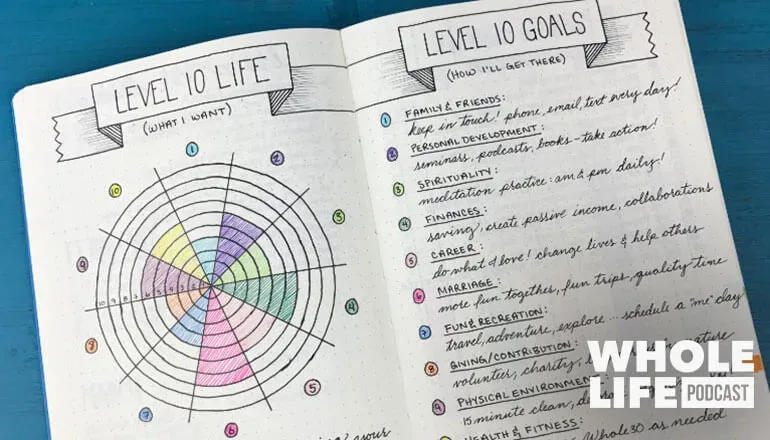 LEVEL 10 LIFE
(WHAT I WANT)
1
2
3
4
5
6
7
8
9
10
10 9 8 7 6 5 4 3 2 1
LEVEL 10 GOALS
(HOW I'LL GET THERE)
1 FAMILY & FRIENDS:
keep in touch! phone, email, text every day!
2 PERSONAL DEVELOPMENT:
seminars, podcasts, books - take action!
3 SPIRITUALITY:
meditation practice: am & pm daily!
4 FINANCES:
saving, create passive income, collaborations
5 CAREER:
do what I love! change lives & help others
6 MARRIAGE:
more fun together, fun trips, quality time
7 FUN & RECREATION:
travel, adventure, explore ... schedule a "me" day
8 GIVING/CONTRIBUTION:
volunteer, charity, nature
9 PHYSICAL ENVIRONMENT:
15 minute clean,
HEALTH & FITNESS:
Whole30 as needed
WHOLE
LIFE PODCAST